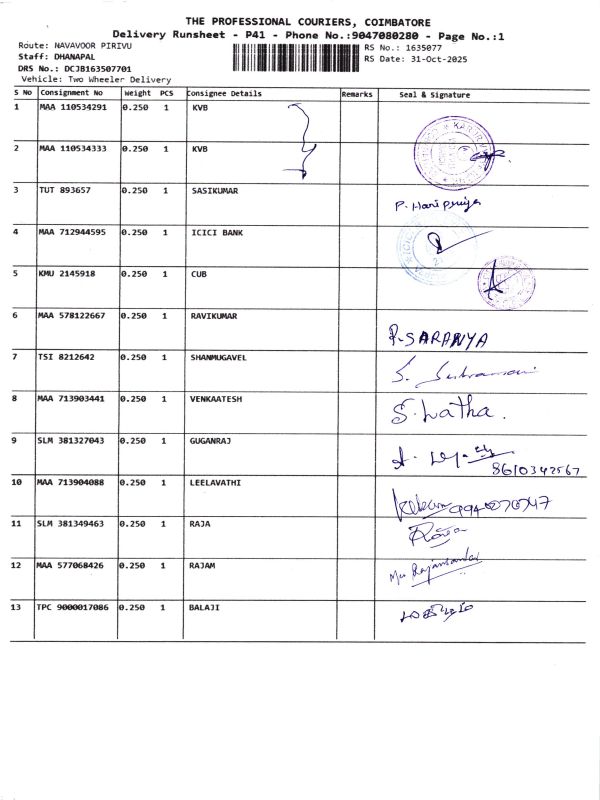 THE PROFESSIONAL COURIERS, COIMBATORE
Delivery Runsheet - P41 - Phone No.:9047080280 - Page No.:1
Route: NAVAVOOR PIRIVU
RS No.: 1635077
Staff: DHANAPAL
RS Date: 31-Oct-2025
DRS No.: DCJB163507701
Vehicle: Two Wheeler Delivery
S No Consignment No Weight PCS Consignee Details Remarks Seal & Signature
1 MAA 110534291 0.250 1 KVB
2 MAA 110534333 0.250 1 KVB
3 TUT 893657 0.250 1 SASIKUMAR P. Haripriya
4 MAA 712944595 0.250 1 ICICI BANK
5 KMU 2145918 0.250 1 CUB
6 MAA 578122667 0.250 1 RAVIKUMAR R. SARANYA
7 TSI 8212642 0.250 1 SHANMUGAVEL
8 MAA 713903441 0.250 1 VENKAATESH S. Latha.
9 SLM 381327043 0.250 1 GUGANRAJ
8610342567
10 MAA 713904088 0.250 1 LEELAVATHI
11 SLM 381349463 0.250 1 RAJA
12 MAA 577068426 0.250 1 RAJAM
13 TPC 9000017086 0.250 1 BALAJI